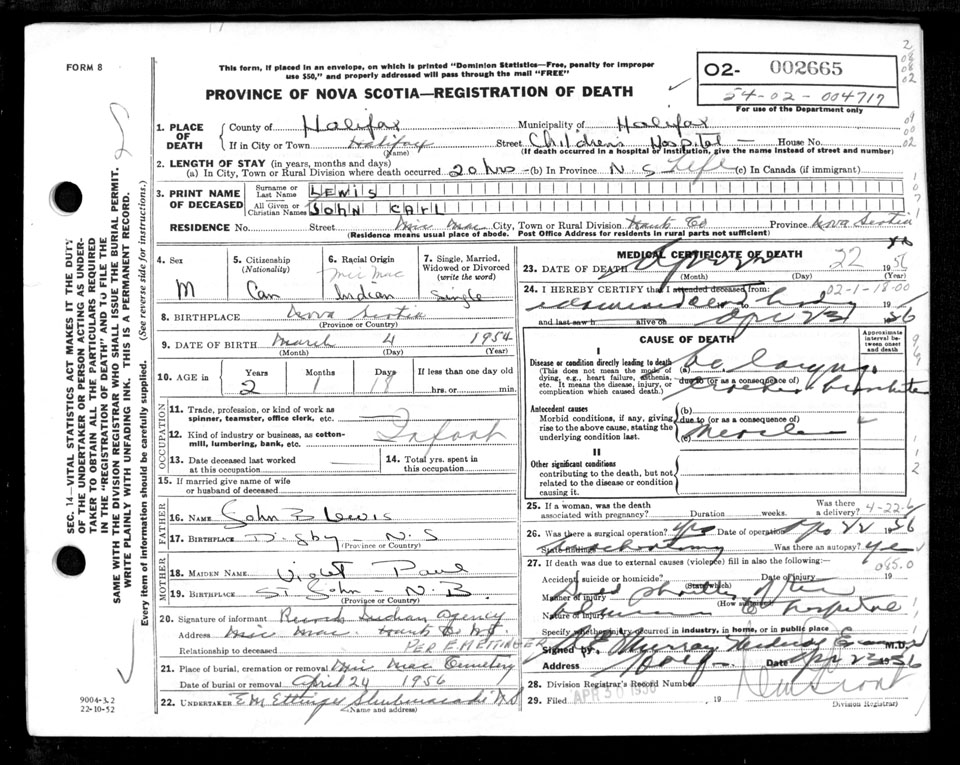 FORM 8
This form, if placed in an envelope, on which is printed "Dominion Statistics—Free, penalty for improper
use $50," and properly addressed will pass through the mail "FREE"
PROVINCE OF NOVA SCOTIA—REGISTRATION OF DEATH
02- 002665
54-02-004717
For use of the Department only
1. PLACE OF DEATH
County of Halifax Municipality of Halifax
If in City or Town Halifax Street Children's Hospital — House No.
(Name) (If death occurred in a hospital or institution, give the name instead of street and number)
2. LENGTH OF STAY (in years, months and days)
(a) In City, Town or Rural Division where death occurred 20 hrs (b) In Province N S Life (c) In Canada (if immigrant)
3. PRINT NAME OF DECEASED
Surname or Last Name LEWIS
All Given or Christian Names JOHN CARL
RESIDENCE No. Street Mic Mac City, Town or Rural Division Hants Co Province Nova Scotia
(Residence means usual place of abode. Post Office Address for residents in rural parts not sufficient)
4. Sex M
5. Citizenship (Nationality) Can
6. Racial Origin Mic Mac Indian
7. Single, Married, Widowed or Divorced (write the word) Single
8. BIRTHPLACE Nova Scotia
(Province or Country)
9. DATE OF BIRTH March 4 1954
(Month) (Day) (Year)
10. AGE in Years Months Days If less than one day old
2 1 hrs. or min.
OCCUPATION
11. Trade, profession, or kind of work as
spinner, teamster, office clerk, etc.
12. Kind of industry or business, as cotton-
mill, lumbering, bank, etc.
Infant
13. Date deceased last worked
at this occupation
14. Total yrs. spent in
this occupation
15. If married give name of wife
or husband of deceased
FATHER
16. NAME John B Lewis
17. BIRTHPLACE Digby - N. S
(Province or Country)
MOTHER
18. MAIDEN NAME Violet Paul
19. BIRTHPLACE St. John - N. B.
(Province or Country)
20. Signature of informant Records Indian Agency
Address Mic Mac Hants Co N.S.
Relationship to deceased PER E M ETTINGER
21. Place of burial, cremation or removal Mic Mac Cemetery
Date of burial or removal April 24 1956
22. UNDERTAKER E M Ettinger Shubenacadie N.S
(Name and address)
9004-3.2
22-10-52
MEDICAL CERTIFICATE OF DEATH
23. DATE OF DEATH April 22 1956
(Month) (Day) (Year)
24. I HEREBY CERTIFY that I attended deceased from:
02-1-18-00
and last saw h alive on Apr 23 1956
CAUSE OF DEATH
Approximate interval between onset and death
I
Disease or condition directly leading to death
(This does not mean the mode of
dying, e.g., heart failure, asthenia,
etc. It means the disease, injury, or
complication which caused death.)
(a)
due to (or as a consequence of)
Antecedent causes
Morbid conditions, if any, giving
rise to the above cause, stating the
underlying condition last.
(b)
due to (or as a consequence of)
(c) Measles
II
Other significant conditions
contributing to the death, but not
related to the disease or condition
causing it.
25. If a woman, was the death
associated with pregnancy? Duration weeks. Was there a delivery? 4-22-6
26. Was there a surgical operation? yes Date of operation Apr 22 1956
State findings Tracheotomy Was there an autopsy? yes
27. If death was due to external causes (violence) fill in also the following:
085.0
Accident, suicide or homicide? Date of injury 19
(State which)
Manner of injury
(How sustained)
Nature of injury
Died shortly after admission to hospital
Specify whether injury occurred in industry, in home, or in public place
Signed by Murray Medical Examiner M.D.
Address Date Apr 23 1956
28. Division Registrar's Record Number
29. Filed APR 30 1956 19
Division Registrar
SEC. 14—VITAL STATISTICS ACT MAKES IT THE DUTY
OF THE UNDERTAKER OR PERSON ACTING AS UNDER-
TAKER TO OBTAIN ALL THE PARTICULARS REQUIRED
IN THE "REGISTRATION OF DEATH" AND TO FILE THE
SAME WITH THE DIVISION REGISTRAR WHO SHALL ISSUE THE BURIAL PERMIT.
WRITE PLAINLY WITH UNFADING INK. THIS IS A PERMANENT RECORD.
Every item of information should be carefully supplied. (See reverse side for instructions.)